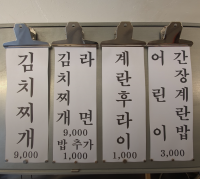 김치찌개
9,000
김치찌개
라면
9,000
밥 추가
1,000
계란후라이
1,000
어린이
간장계란밥
3,000